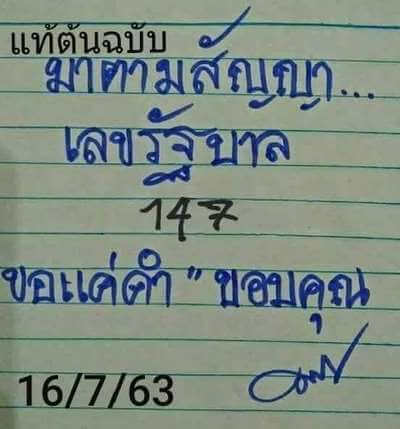 แท้ต้นฉบับ
มาตามสัญญา...
เลขรัฐบาล
147
ขอแค่คำ " ขอบคุณ
16/7/63